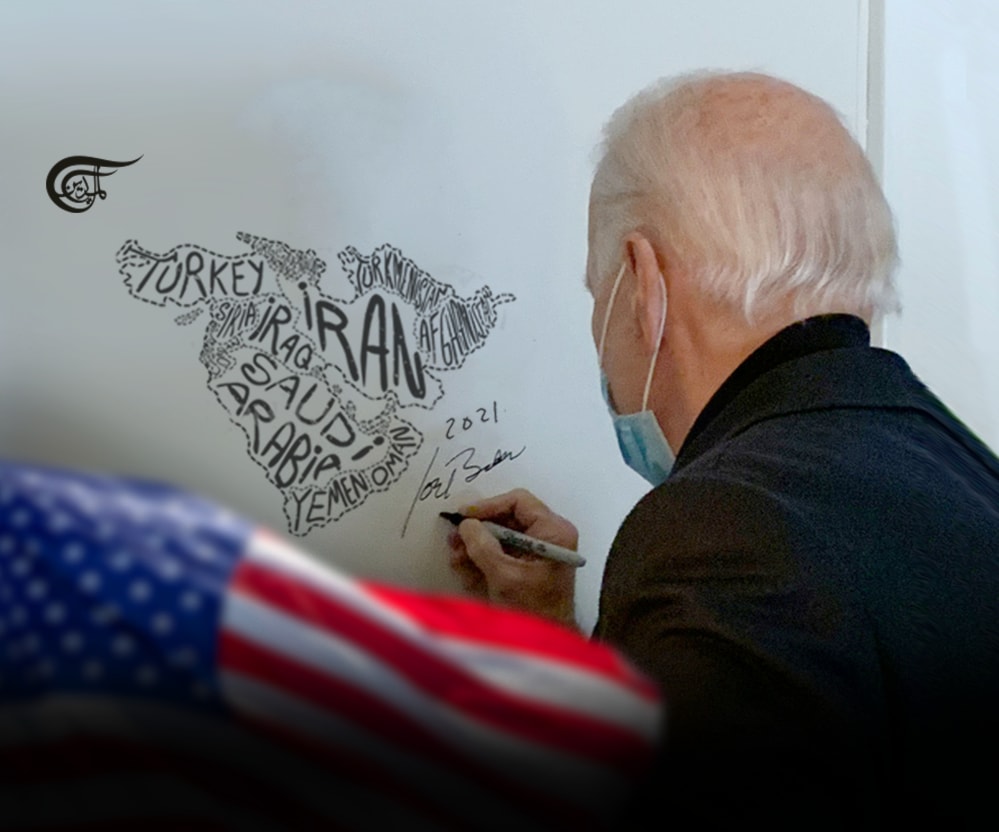 الميادين
TURKEY
TURKMENISTAN
SYRIA
IRAQ
IRAN
AFGHANISTAN
SAUDI
ARABIA
OMAN
YEMEN
2021
Joe Biden